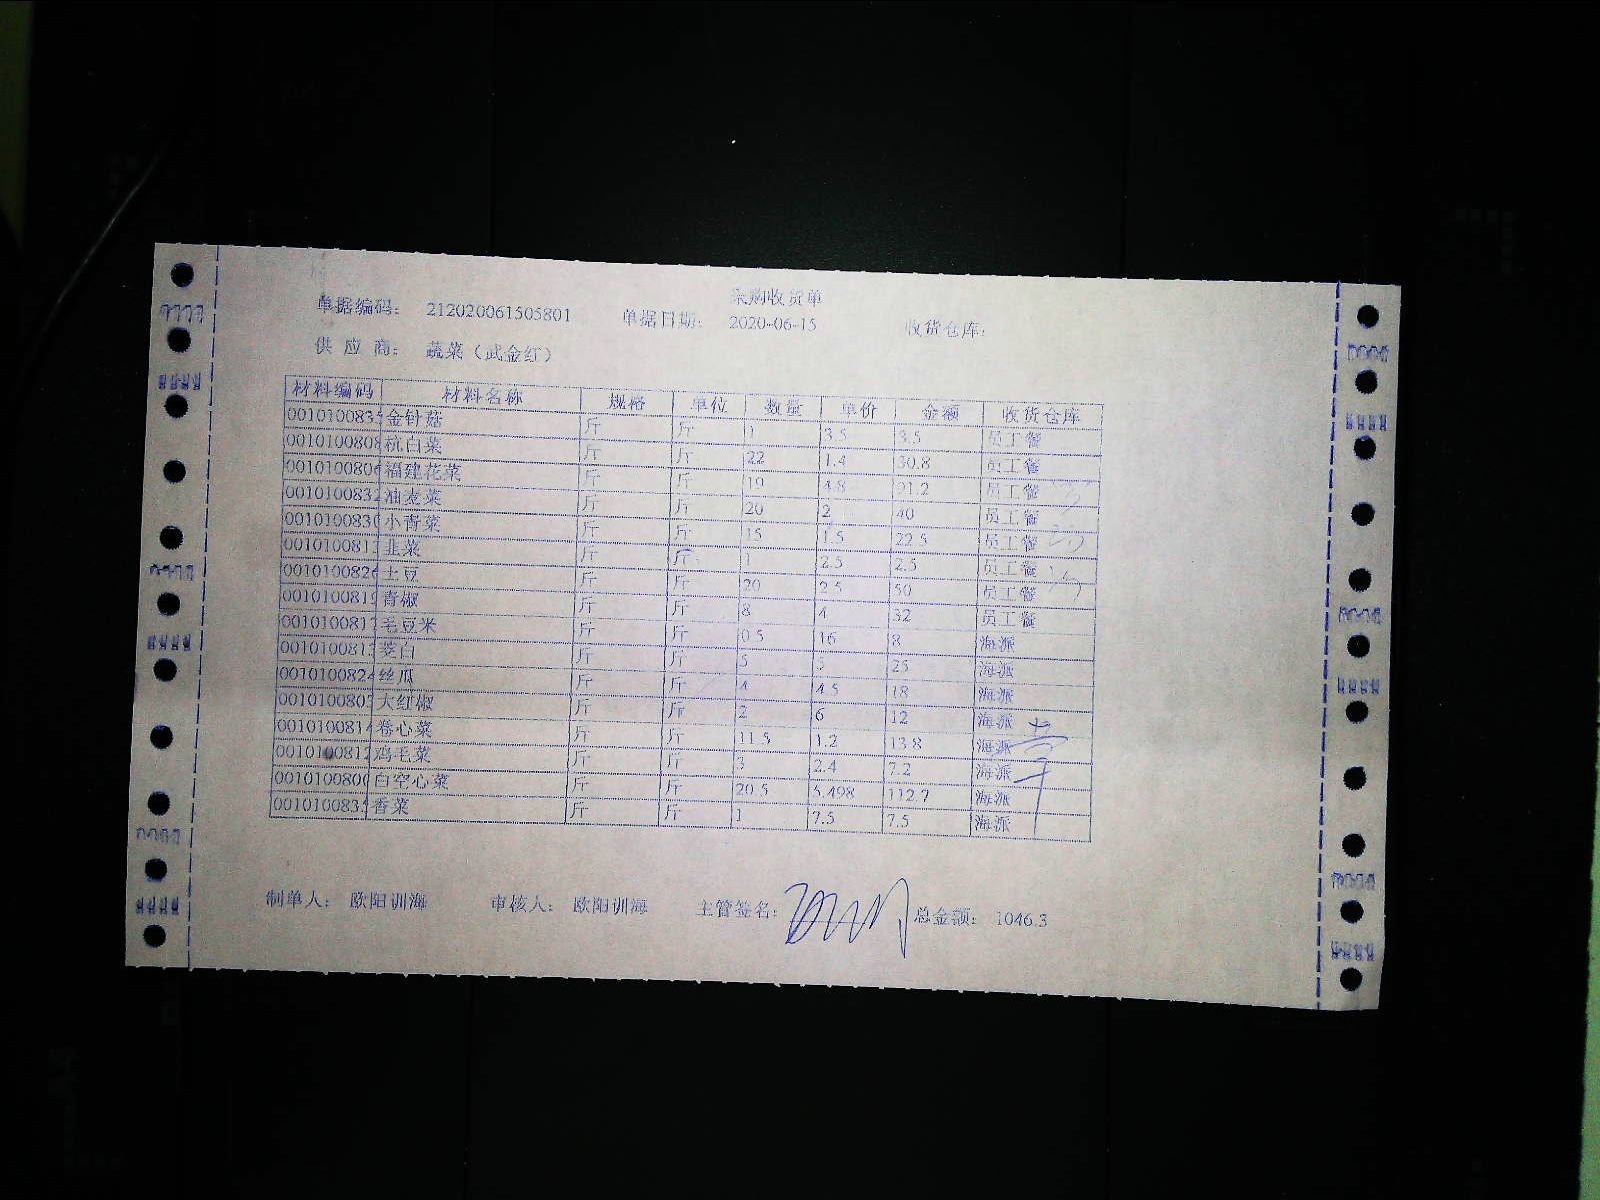 采购收货单
单据编码： 212020061505801 单据日期： 2020-06-15 收货仓库：
供 应 商： 蔬菜（武金红）
材料编码 材料名称 规格 单位 数量 单价 金额 收货仓库
0010100835 金针菇 斤 斤 1 3.5 3.5 员工餐
0010100808 杭白菜 斤 斤 22 1.4 30.8 员工餐
001010080 福建花菜 斤 斤 19 4.8 91.2 员工餐
0010100832 油麦菜 斤 斤 20 2 40 员工餐
0010100830 小青菜 斤 斤 15 1.5 22.5 员工餐
001010081 韭菜 斤 斤 1 2.5 2.5 员工餐
001010082 土豆 斤 斤 20 2.5 50 员工餐
001010081 青椒 斤 斤 8 4 32 员工餐
001010081 毛豆米 斤 斤 0.5 16 8 海派
001010081 茭白 斤 斤 5 5 25 海派
0010100824 丝瓜 斤 斤 4 4.5 18 海派
001010080 大红椒 斤 斤 2 6 12 海派
0010100814 卷心菜 斤 斤 11.5 1.2 13.8 海派
0010100812 鸡毛菜 斤 斤 3 2.4 7.2 海派
0010100800 白空心菜 斤 斤 20.5 5.498 112.7 海派
001010083 香菜 斤 斤 1 7.5 7.5 海派
制单人： 欧阳训海 审核人： 欧阳训海 主管签名： 总金额： 1046.3